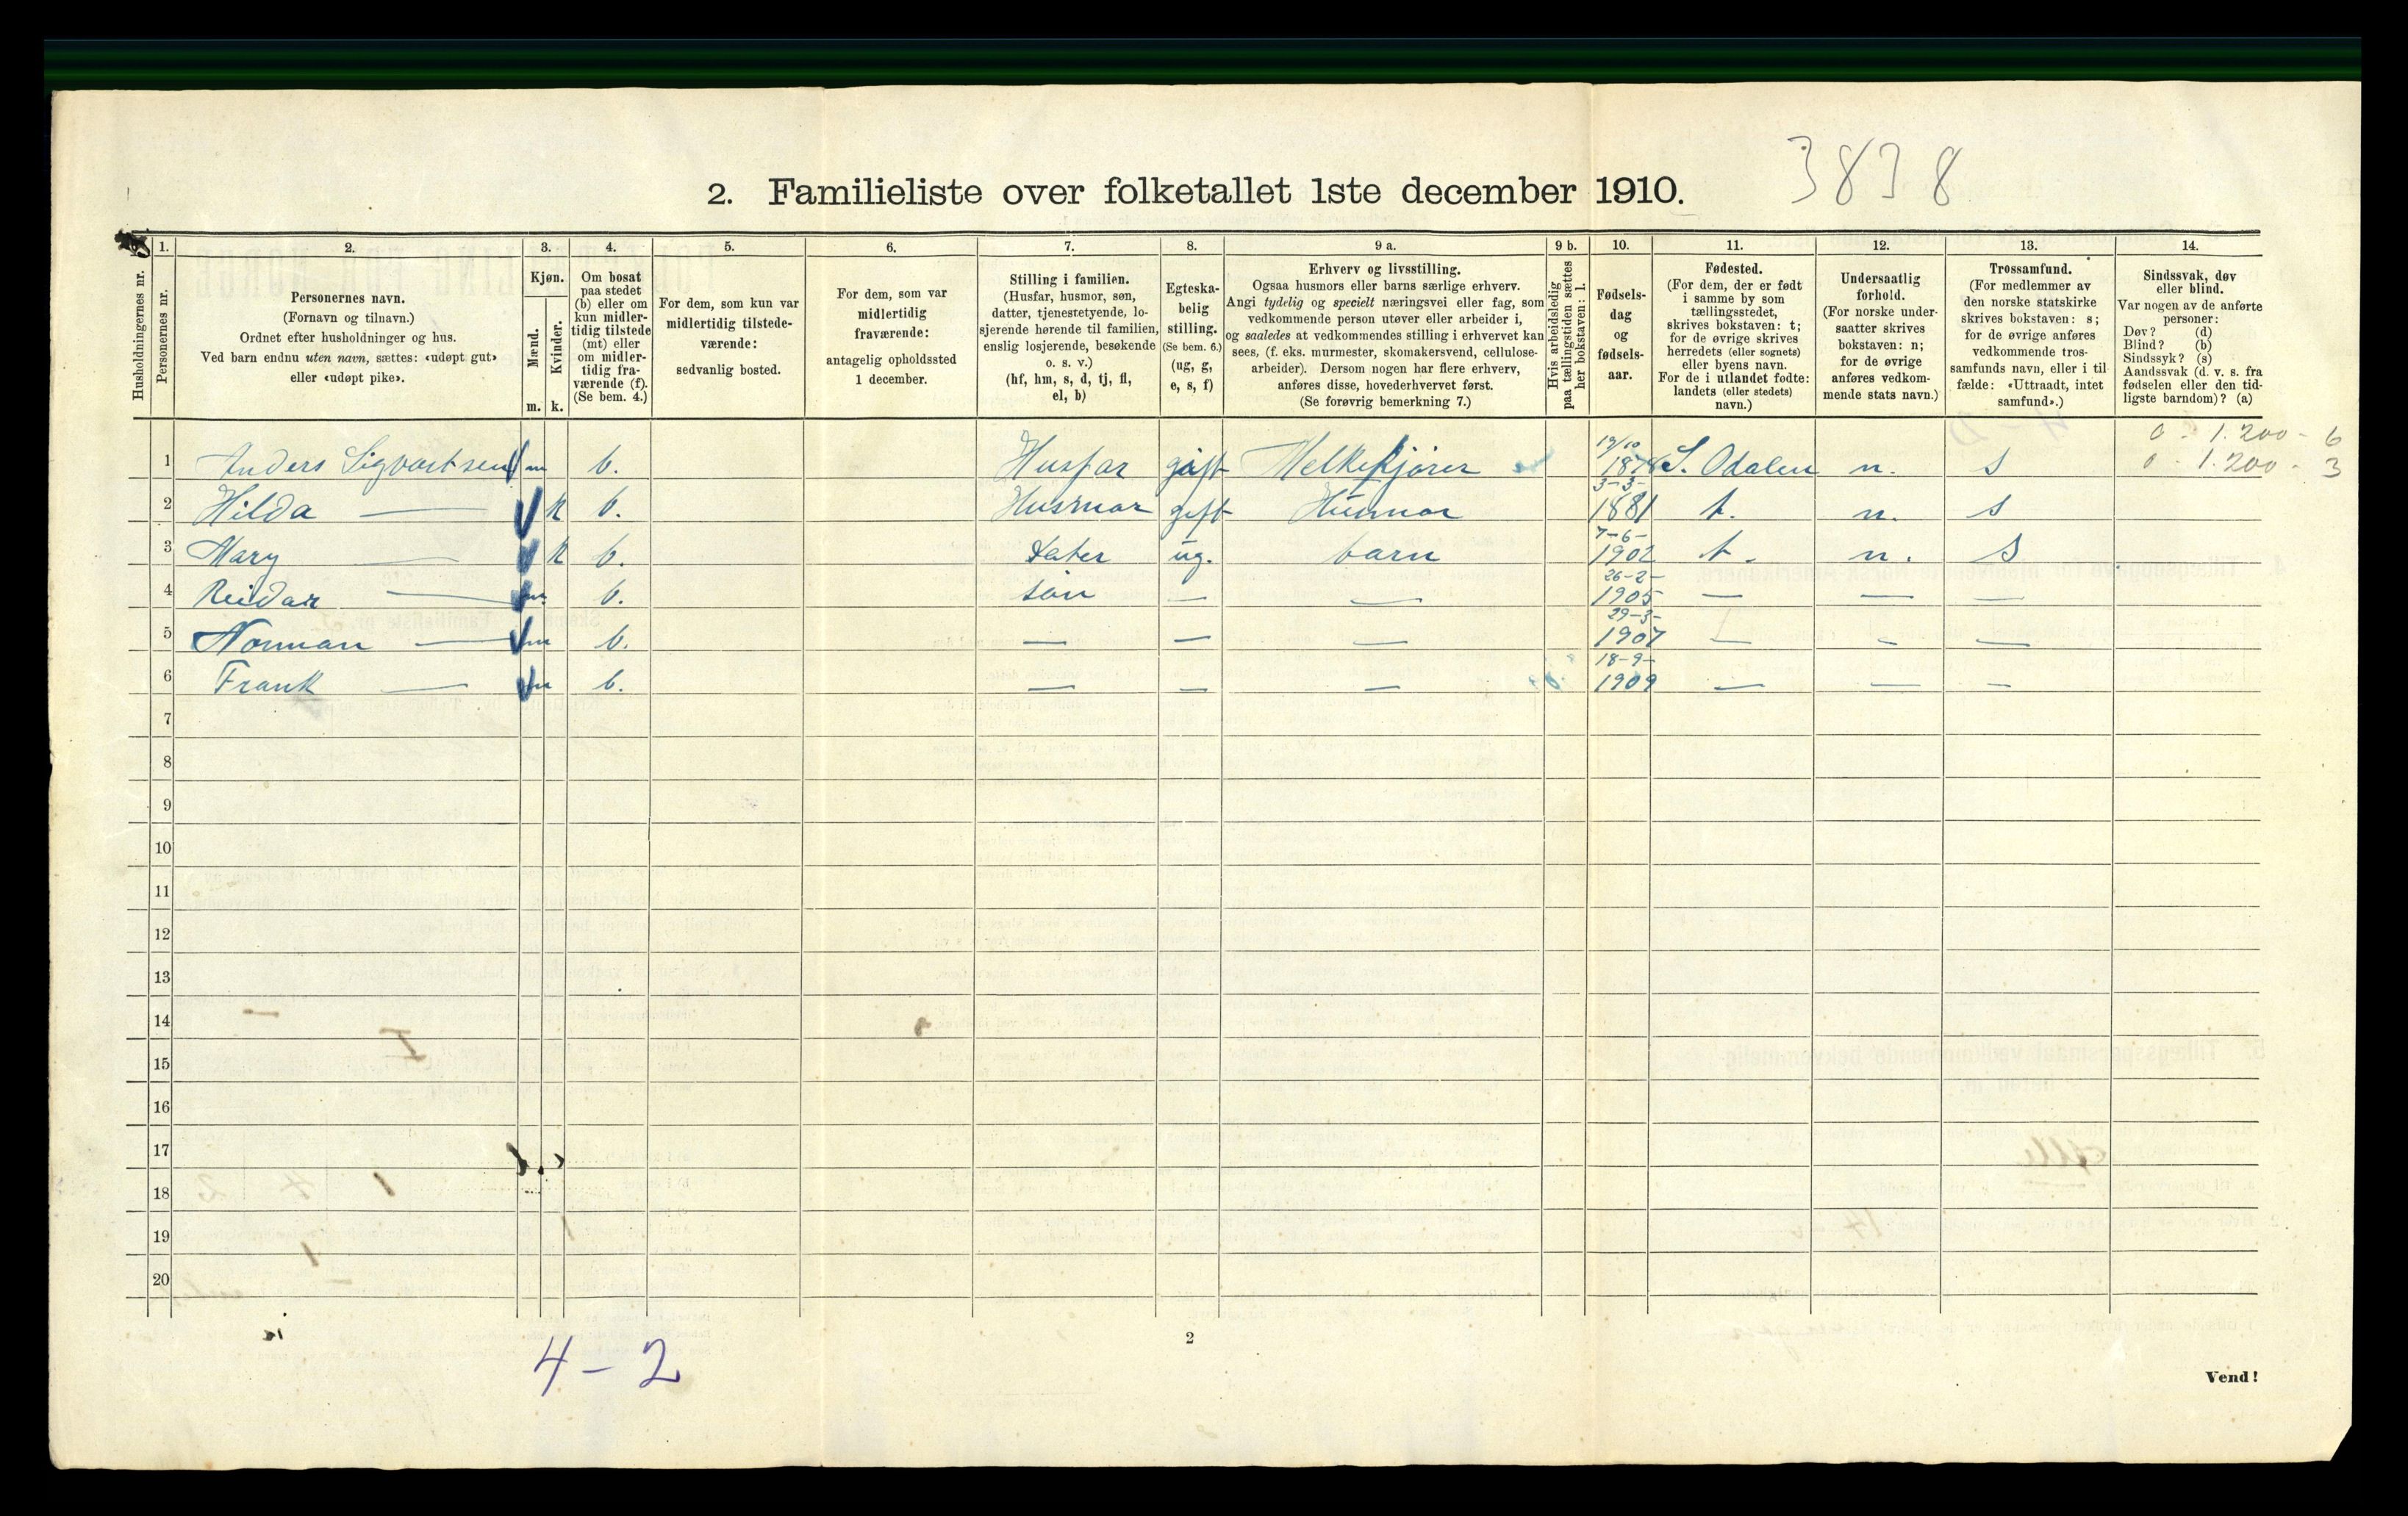 3838
2. Familieliste over folketallet 1ste december 1910.
Husholdningernes nr.
1.
Personernes nr.
2.
Personernes navn.
(Fornavn og tilnavn.)
Ordnet efter husholdninger og hus.
Ved barn endnu uten navn, sættes: «udøpt gut»
eller «udøpt pike».
3.
Kjøn.
Mænd.
Kvinder.
m. k.
4.
Om bosat
paa stedet
(b) eller om
kun midler-
tidig tilstede
(mt) eller
om midler-
tidig fra-
værende (f).
(Se bem. 4.)
5.
For dem, som kun var
midlertidig tilstede-
værende:
sedvanlig bosted.
6.
For dem, som var
midlertidig
fraværende:
antagelig opholdssted
1 december.
7.
Stilling i familien.
(Husfar, husmor, søn,
datter, tjenestetyende, lo-
sjerende hørende til familien,
enslig losjerende, besøkende
o. s. v.)
(hf, hm, s, d, tj, fl,
el, b)
8.
Egteska-
belig
stilling.
(Se bem. 6.)
(ug, g,
e, s, f)
9 a.
Erhverv og livsstilling.
Ogsaa husmors eller barns særlige erhverv.
Angi tydelig og specielt næringsvei eller fag, som
vedkommende person utøver eller arbeider i,
og saaledes at vedkommendes stilling i erhvervet kan
sees, (f. eks. murmester, skomakersvend, cellulose-
arbeider). Dersom nogen har flere erhverv,
anføres disse, hovederhvervet først.
(Se forøvrig bemerkning 7.)
9 b.
Hvis arbeidsledig
paa tællingstiden sættes
her bokstaven: l.
10.
Fødsels-
dag
og
fødsels-
aar.
11.
Fødested.
(For dem, der er født
i samme by som
tællingsstedet,
skrives bokstaven: t;
for de øvrige skrives
herredets (eller sognets)
eller byens navn.
For de i utlandet fødte:
landets (eller stedets)
navn.)
12.
Undersaatlig
forhold.
(For norske under-
saatter skrives
bokstaven: n;
for de øvrige
anføres vedkom-
mende stats navn.)
13.
Trossamfund.
(For medlemmer av
den norske statskirke
skrives bokstaven: s;
for de øvrige anføres
vedkommende tros-
samfunds navn, eller i til-
fælde: «Uttraadt, intet
samfund».)
14.
Sindssvak, døv
eller blind.
Var nogen av de anførte
personer:
Døv? (d)
Blind? (b)
Sindssyk? (s)
Aandssvak (d. v. s. fra
fødselen eller den tid-
ligste barndom)? (a)
0 - 1.200 - 6
0 - 1.200 - 3
1 Anders Sigvartsen m b. Husfar gift Melkekjører 19/10 1878 S. Odalen n. s
2 Hilda — k b. Husmor gift Husmor 3-3- 1881 t. n. s
3 Mary — k b. Dater ug. barn 7-6- 1902 t. n. s
4 Reidar — m b. søn — — 26-2- 1905 — — —
5 Norman — m b. — — — 29-3- 1907 — — —
6 Frank — m b. — — — 18-9- 1909 — — —
7
8
9
10
11
12
13
14
15
16
17
18
19
20
4 - 2
2
Vend!